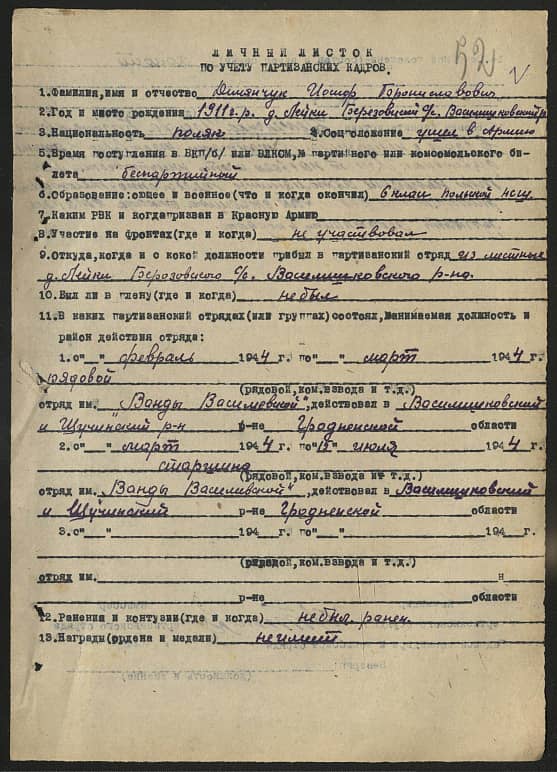 52
ЛИЧНЫЙ ЛИСТОК
ПО УЧЕТУ ПАРТИЗАНСКИХ КАДРОВ.
1.Фамилия,имя и отчество Демянчук Иосиф Брониславович
2.Год и место рождения 1911г.р. д. Лейки Березовский с/с. Василишковский р
3.Национальность поляк 4.Соцположение ушел в Армию
5.Время поступления в ВКП/б/ или ВЛКСМ,№ партийного или комсомольского би-
лета беспартийной
6.Образование:общее и военное(что и когда окончил) 6 клас польской
7.Каким РВК и когда призван в Красную Армию
8.Участие на фронтах(где и когда) не участвовал
9.Откуда,когда и с какой должности прибыл в партизанский отряд из местных
д. Лейки Березовского с/с. Василишковского р-на.
10.Был ли в плену(где и когда) не был
11.В каких партизанский отрядах(или группах)состоял,занимаемая должность и
район действия отряда:
1.с"__" февраль 1944 г. по"__" март 1944 г.
рядовой
(рядовой,ком.взвода и т.д.)
отряд им. "Ванды Василевской",действовал в "Василишковский
и Щучинский р-н р-не Гродненской области
2.с"__" март 1944 г. по"15" июля 1944 г.
старшина
(рядовой,ком.взвода ит т.д.)
отряд им. "Ванды Василевской",действовал в Василишковский
и Щучинский р-не Гродненской области
3.с"__" 194 г. по"__" 194 г.
(рядовой,ком.взвода и т.д.)
отряд им. н
р-не области
12.Ранения и контузии(где и когда) не был ранен.
13.Награды(ордена и медали) не имеет.
(должность и звание)